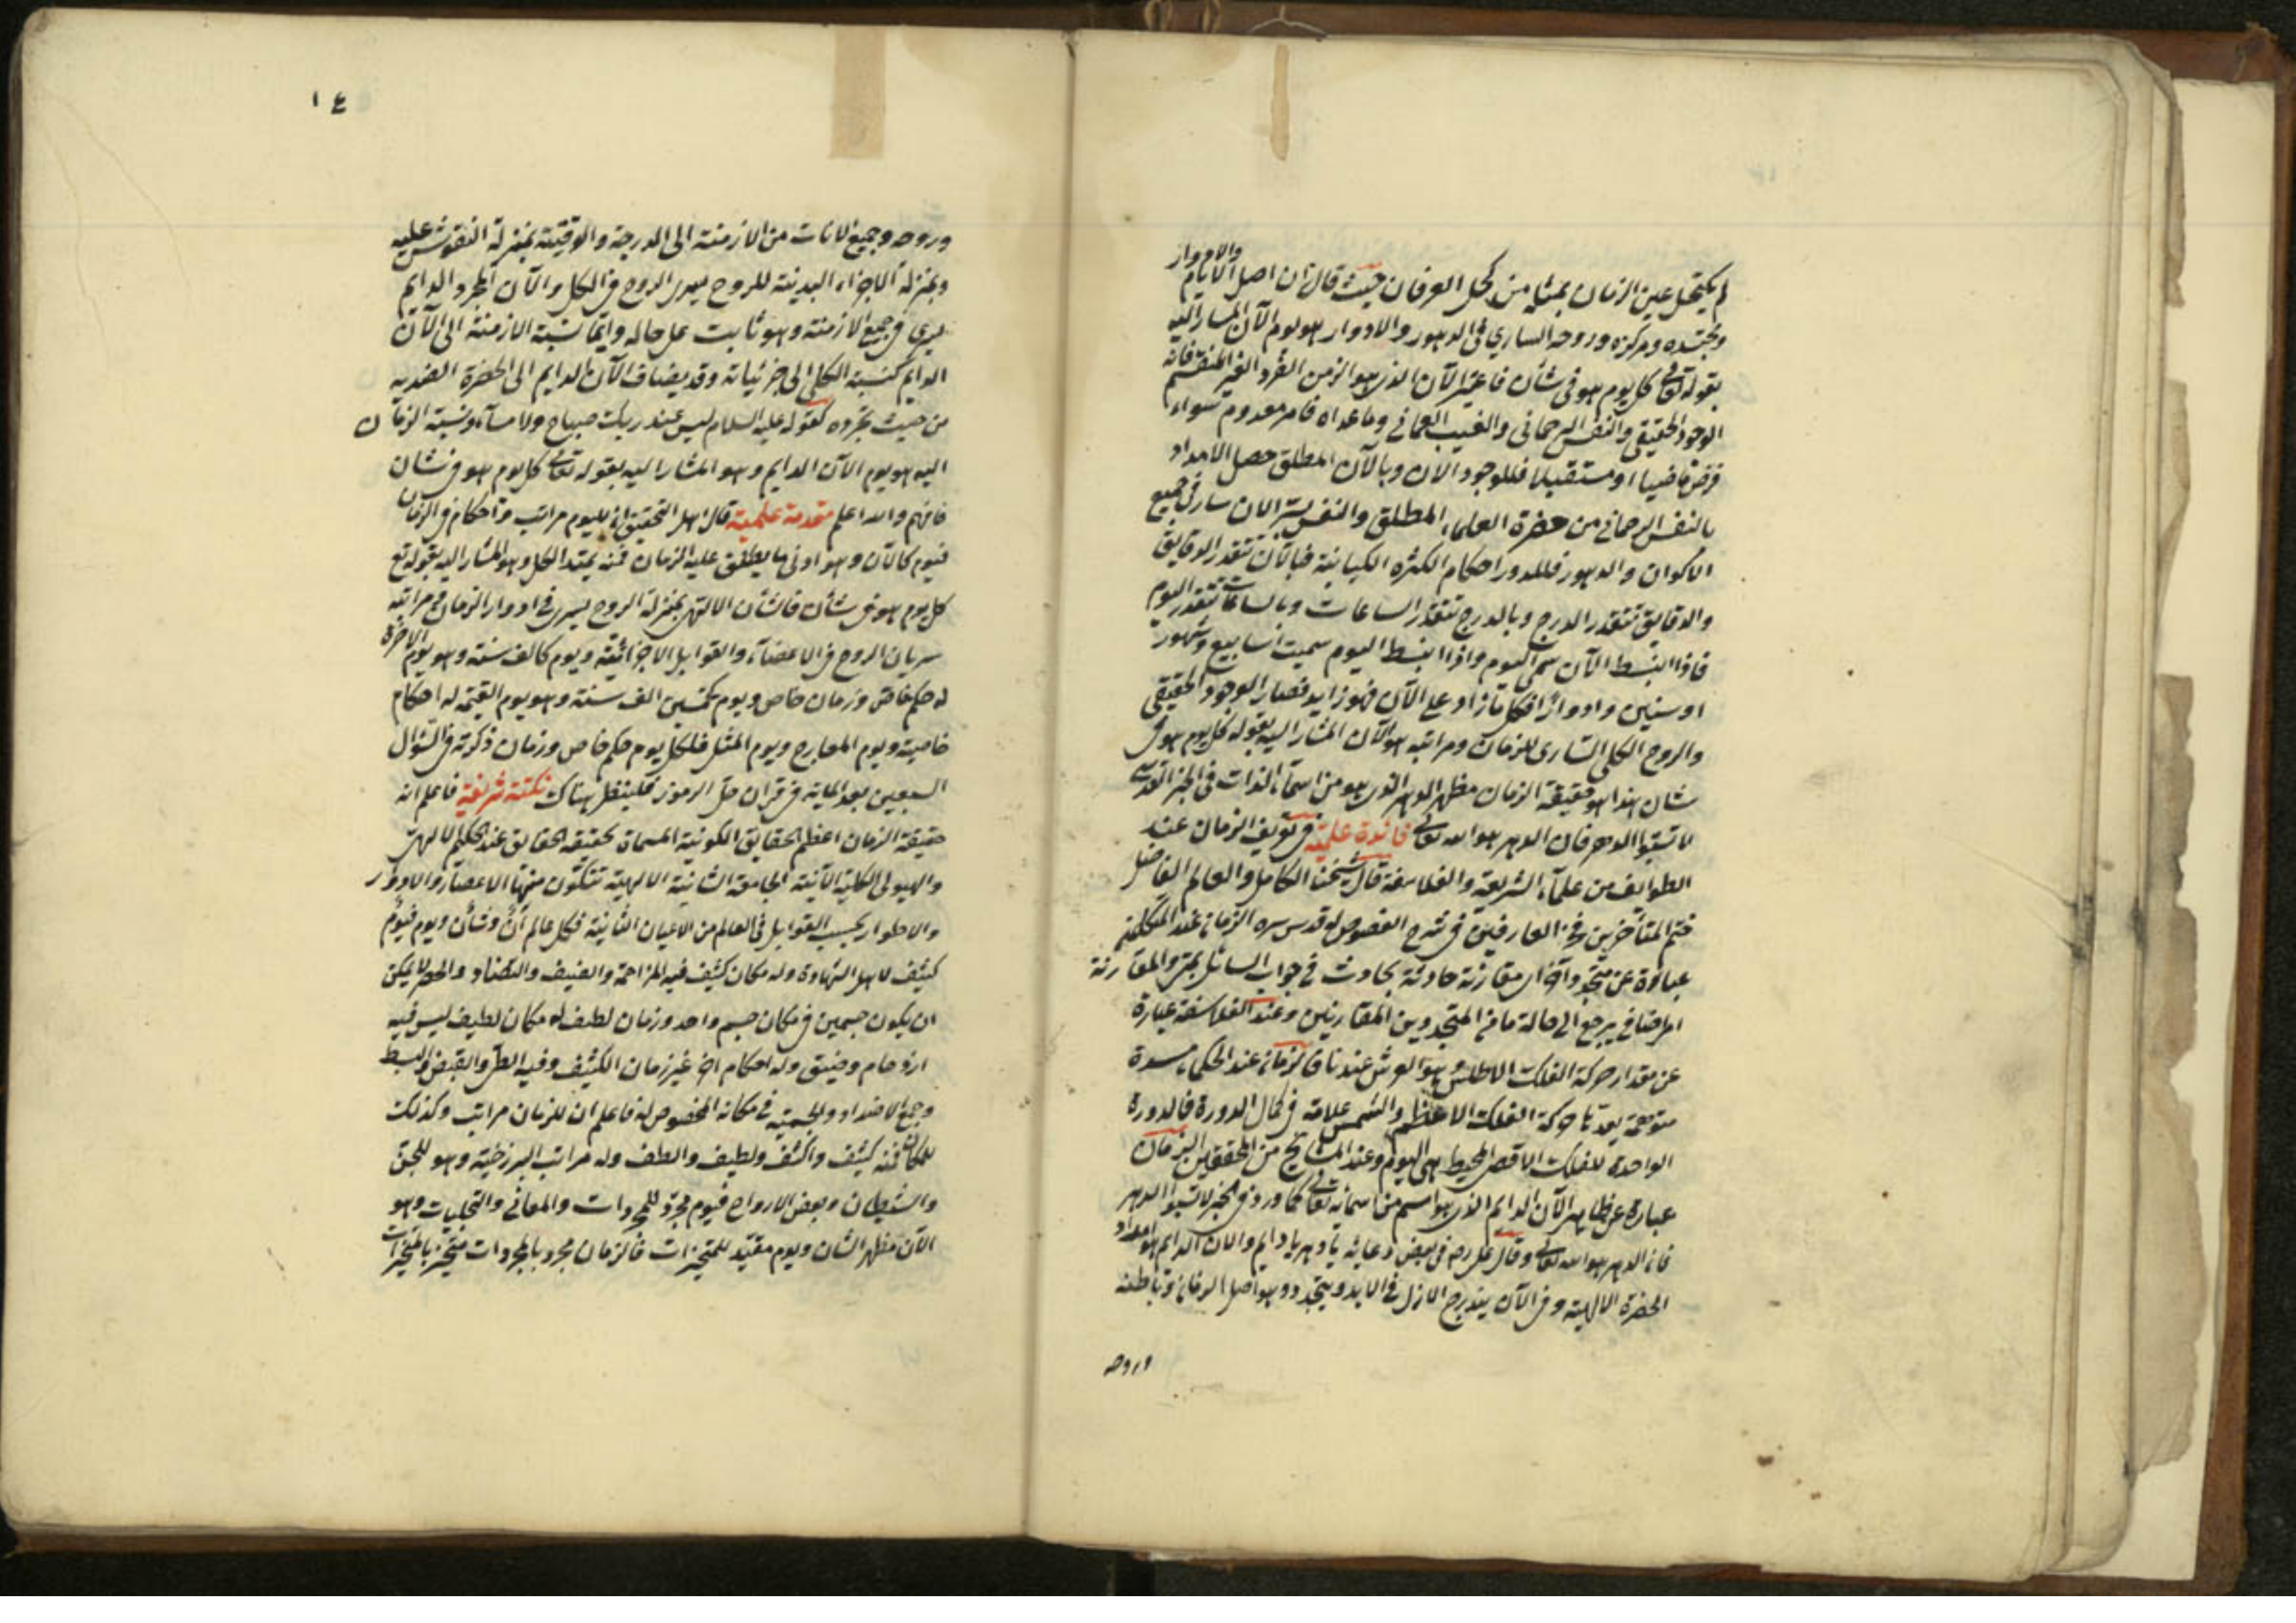 والادوار
لم يكتحل عين الزمان بمثله من كحل العرفان حيث قال ان اصل الايام
ومحتده ومركزه وروحه الساري في الدهور والادوار هو يوم الآن المشار اليه
بقوله تعالى كل يوم هو في شأن فاعتبر الآن الذي هو الزمن الفرد الغير المنقسم فانه
الوجود الحقيقي والنفس الرحماني والغيب العمائي وما عداه فامر معدوم سواء
فرض ماضيا او مستقبلا فللوجود الآن وبالآن المطلق حصل الامداد
بالنفس الرحماني من حضرة العلماء المطلق والنفس الان سار في جميع
الاكوان والدهور فللدور احكام الكثرة الكيانية فبالآن تتقدر الدقايق
والدقايق تتقدر الدرج وبالدرج تتقدر الساعات وبالساعات تتقدر اليوم
فاذا انبسط الآن سمي اليوم واذا انبسط اليوم سميت اسابيع وشهور
او سنين وادوارا فكل ما زاد على الآن فهو زايد فصار الوجود الحقيقي
والروح الكلي الساري للزمان ومراتبه هو الآن المشار اليه بقوله كل يوم هو في
شان هذا هو حقيقة الزمان مظهر الدهر الذي هو من اسماء الذات في الخبر القدسي
لا تسبوا الدهر فان الدهر هو الله تعالى فائدة علمية في تعريف الزمان عند
الطوائف من علماء الشريعة والفلاسفة قال شيخنا الكامل والعالم الفاضل
ختم المتأخرين فخر العارفين في شرح الفصوص له قدس سره الزمان عند المتكلمين
عبارة عن متجدد آخر اي مقارنة حادثة بحادث في جواب السائل بمتى والمقارنة
امر اضافي يرجع الى حالة ما من المتجددين المقارنين وعند الفلاسفة عبارة
عن مقدار حركة الفلك الاطلس وهو العرش عندنا فالزمان عند الحكماء مدة
متوهمة يعدها حركة الفلك الاعظم والشمس علامة في كمال الدورة فالدورة
الواحدة للفلك الاقصى المحيط هي اليوم وعند المشايخ من المحققين الزمان
عبارة عن مظاهر الآن الدايم الذي هو اسم من اسمائه تعالى كما ورد في الخبر لا تسبوا الدهر
فان الدهر هو الله تعالى وقال علي رضه في بعض دعائه يا دهر يا دايم والان الدايم هو امداد
الحضرة الالهية وفي الآن يندرج الازل في الابد ويتجدد وهو اصل الزمان وباطنه
وروحه
١٤
وروحه وجميع الانات من الازمنة الى الدرجة والدقيقة بمنزلة النقوش عليه
وبمنزلة الاجزاء البدنية للروح يسرى الروح في الكل والآن المجرد الدايم
يسرى في جميع الازمنة وهو ثابت على حاله وانما نسبة الازمنة الى الآن
الدايم كنسبة الكلي الى جزئياته وقد يضاف الآن الدايم الى الحضرة العندية
من حيث تجرده كقوله عليه السلام ليس عند ربك صباح ولا مساء ونسبة الزمان
اليه هو يوم الآن الدايم وهو المشار اليه بقوله تعالى كل يوم هو في شان
فافهم والله اعلم مقدمة علمية قال اهل التحقيق ان لليوم مراتب واحكام في الزمان
فيوم كالآن وهو ادنى ما يطلق عليه الزمان فمنه يمتد الكل وهو المشار اليه بقوله تع
كل يوم هو في شأن فالشأن الالهي بمنزلة الروح يسرى في ادوار الزمان في مراتبه
سريان الروح في الاعضاء والقوابل الاجزائية ويوم كالف سنة وهو يوم الآخرة
له حكم خاص وزمان خاص ويوم خمسين الف سنة وهو يوم القيمة له احكام
خاصة ويوم المعارج ويوم المثل فلكل يوم حكم خاص وزمان ذكرته في السؤال
السبعين بعد المائة في قران حل الرموز فلينظر هناك نكتة شريفة فاعلم ان
حقيقة الزمان اعظم الحقايق الكونية المسماة بحقيقة الحقايق عند الحكيم الالهي
والهيولى الكلية الآنية الجامعة الثانية الالهية تتكون منها الاعصار والادوار
والاطوار بحسب القوابل في العالم من الاعيان الثابتة فكل عالم آن وشأن ويوم فيوم
كثيف لاهل الشهادة وله مكان كثيف فيه المزاحمة والضيف والتضاد والحصر لا يمكن
ان يكون جسمين في مكان جسم واحد وزمان لطيف له مكان لطيف ليس فيه
ازدحام وضيق وله احكام اخر غير زمان الكثيف وفيه الطي والقبض والبسط
وجمع الاضداد والجمعية في مكانه المخصوص له فاعلم ان للزمان مراتب وكذلك
للمكان فمنه كثيف واكثف ولطيف والطف وله مراتب البرزخية وهو للجن
والشيطان وبعض الارواح فيوم مجرد للمجردات والمعاني والتجليات وهو
الآن مظهر الشان ويوم مقيد للمتحيزات فالزمان مجرد بالمجردات متحيز بالمتحيزات